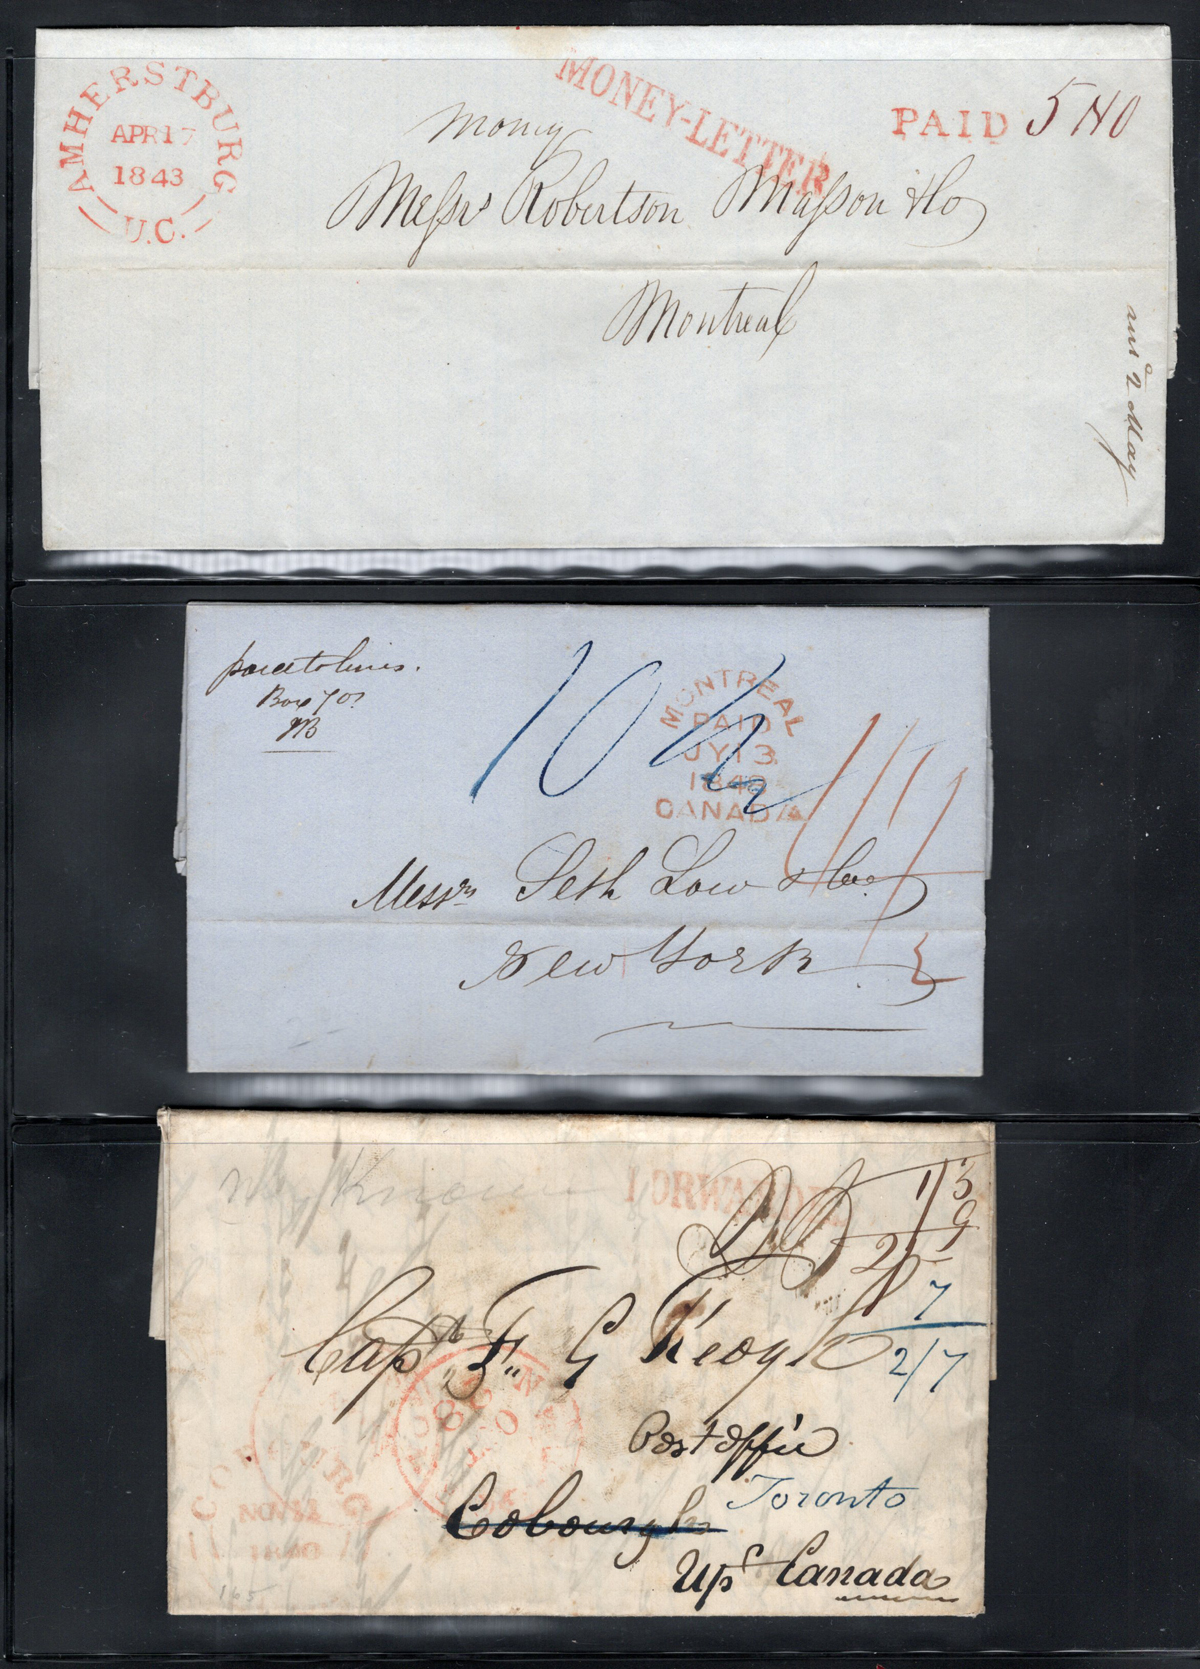 AMHERSTBURG
APR 17
1843
U.C.
MONEY-LETTER
PAID 5 N0
money
Messrs Robertson Masson & Co
Montreal
2 May
paid to lines.
Box 701
10 1/2
MONTREAL
PAID
JY 13
1848
CANADA
Messrs Seth Low & Co
New York
FORWARDED
1/3
9
2/-
7
2/7
Capt F. G Keogh
Post Office
Cobourgh Toronto
Upr Canada
COBOURG
NOV 22
1840
165